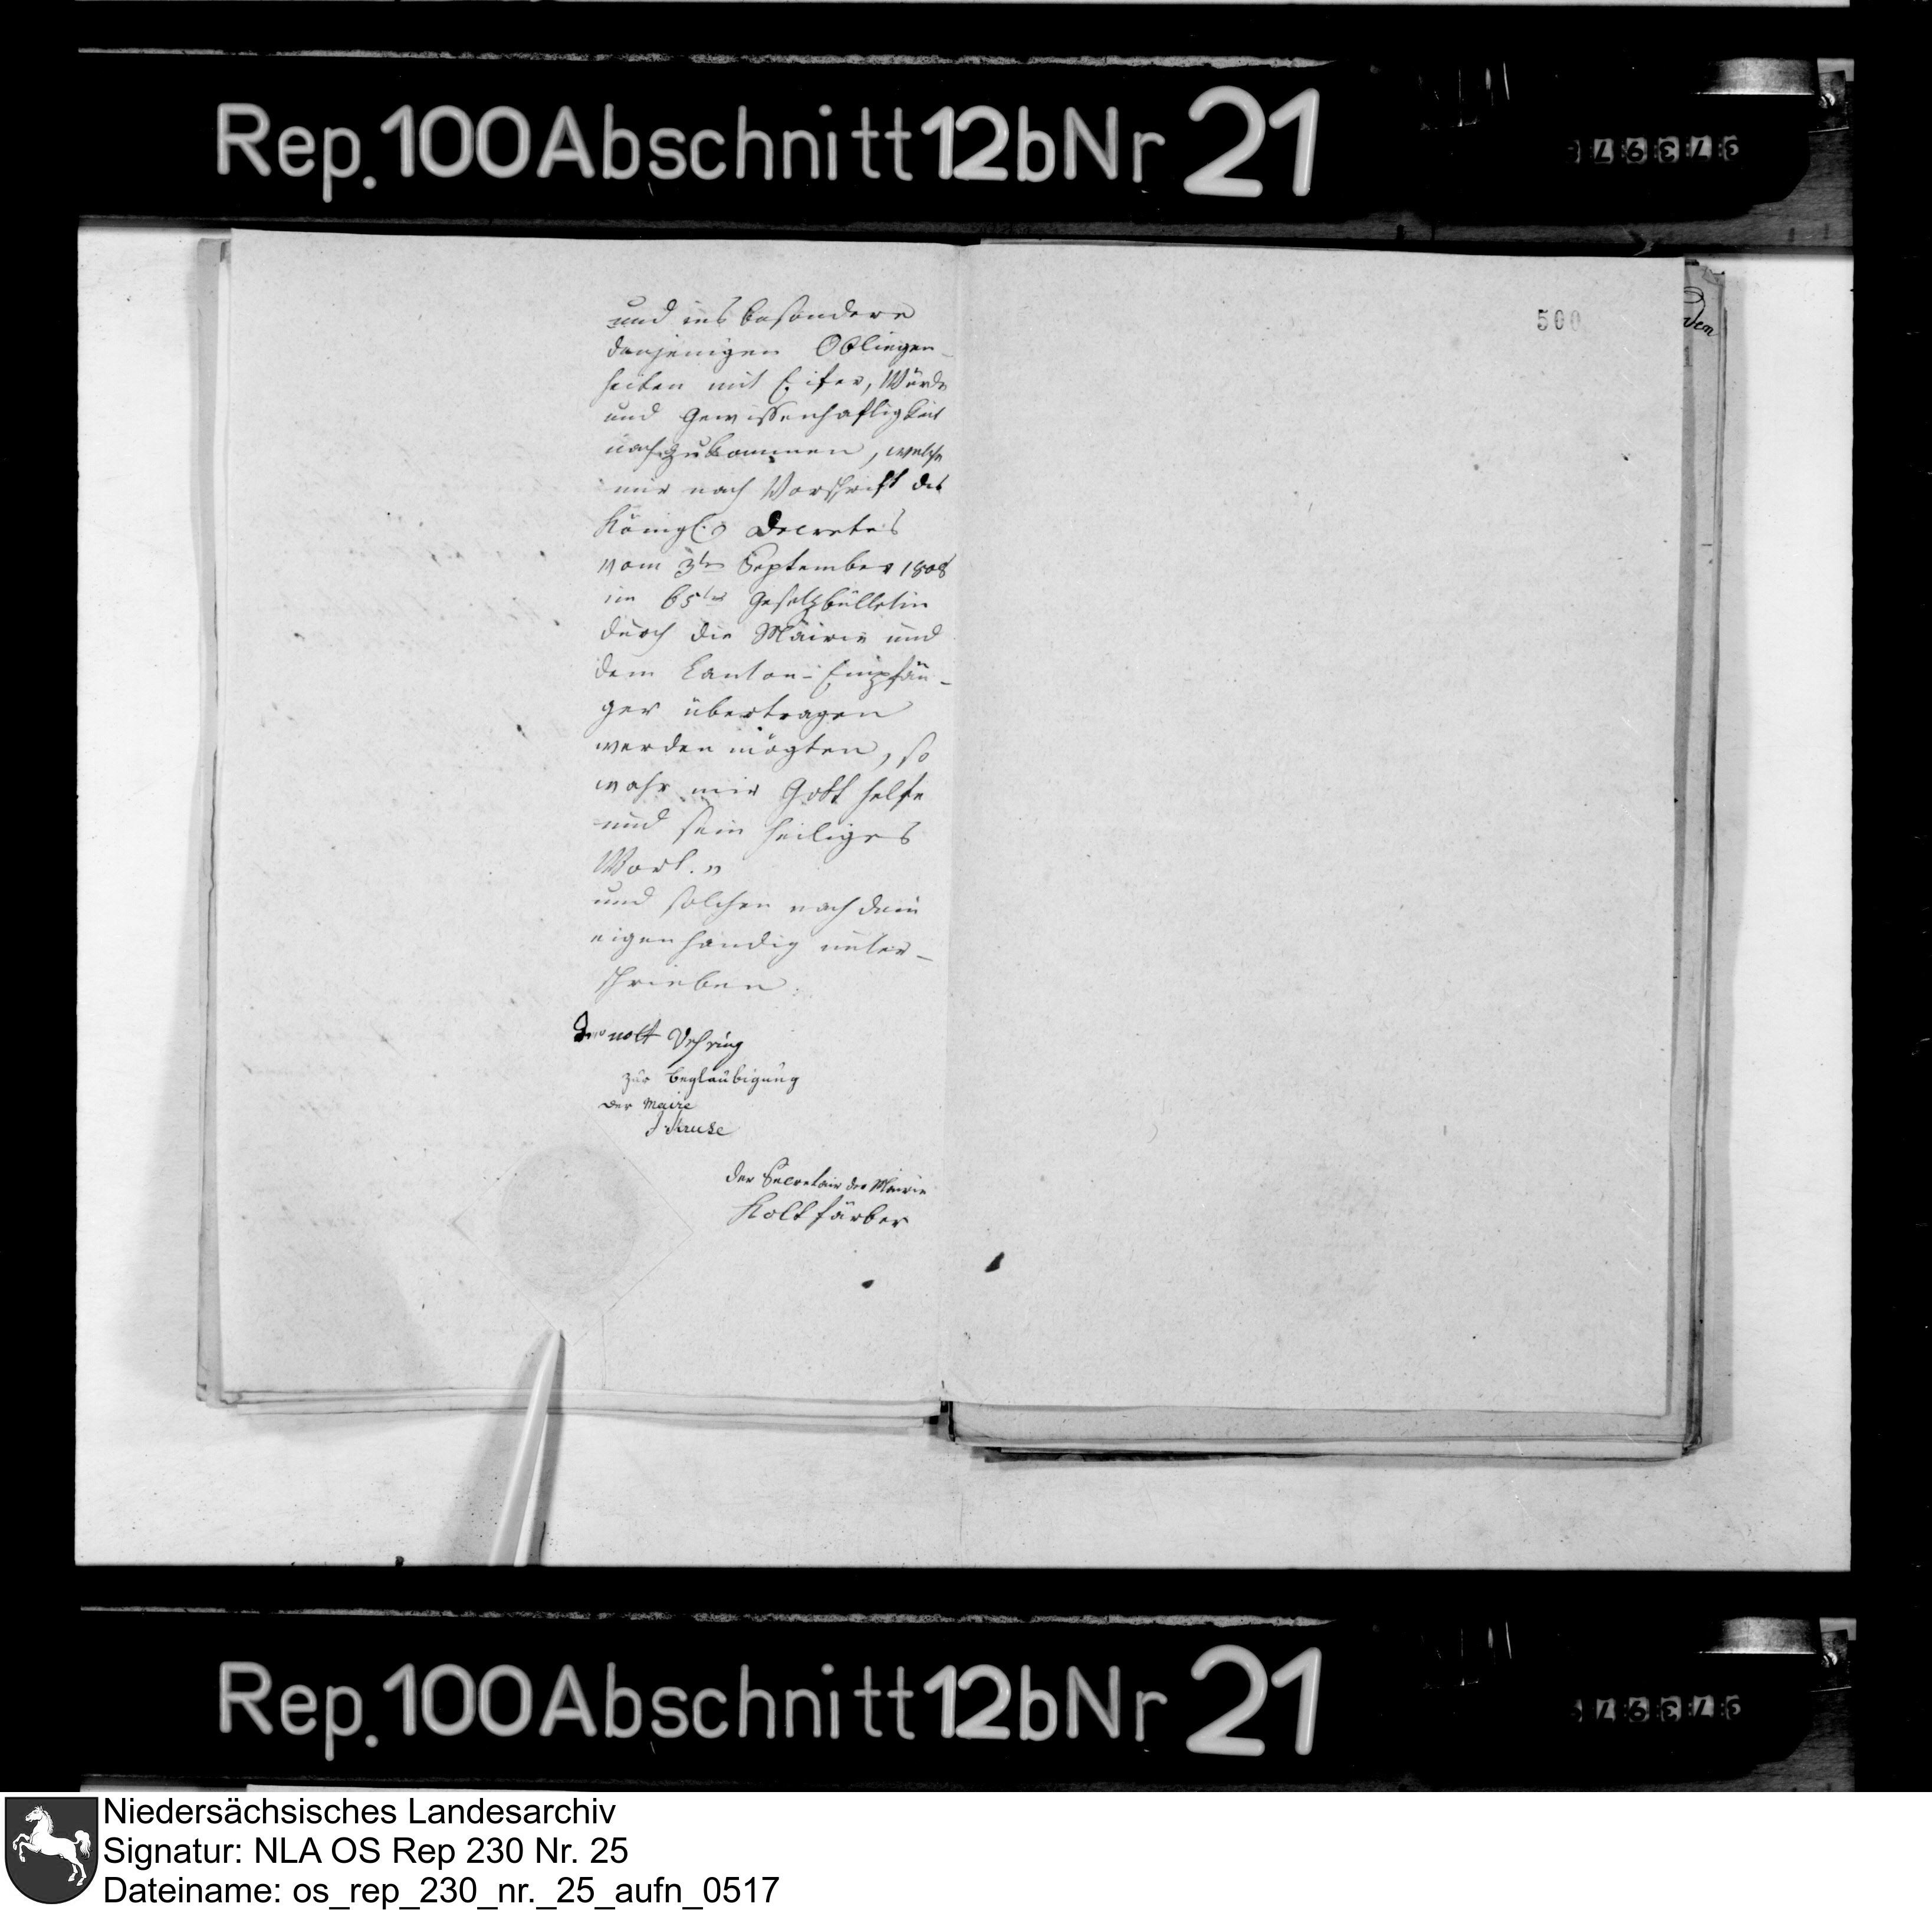 Rep. 100 Abschnitt 12b Nr 21
und ins besondere
denjenigen Obliegen-
heiten mit Eifer, Würde
und Gewissenhaftigkeit
nachzukommen, welche
mir nach Vorschrift des
Königl. Decretes
vom 3ten September 1808
im 65ten Gesetzbülletin
durch die Mairie und
dem Canton-Empfän-
ger übertragen
werden mögten, so
wahr mir Gott helfe
und sein heiliges
Wort."
und solchen nach dem
eigenhändig unter-
schrieben.
Vehring
zur Beglaubigung
der Maire
Kruse
der Secretair der Mairie
Holtfärber
500
Rep. 100 Abschnitt 12b Nr 21
Niedersächsisches Landesarchiv
Signatur: NLA OS Rep 230 Nr. 25
Dateiname: os_rep_230_nr._25_aufn_0517